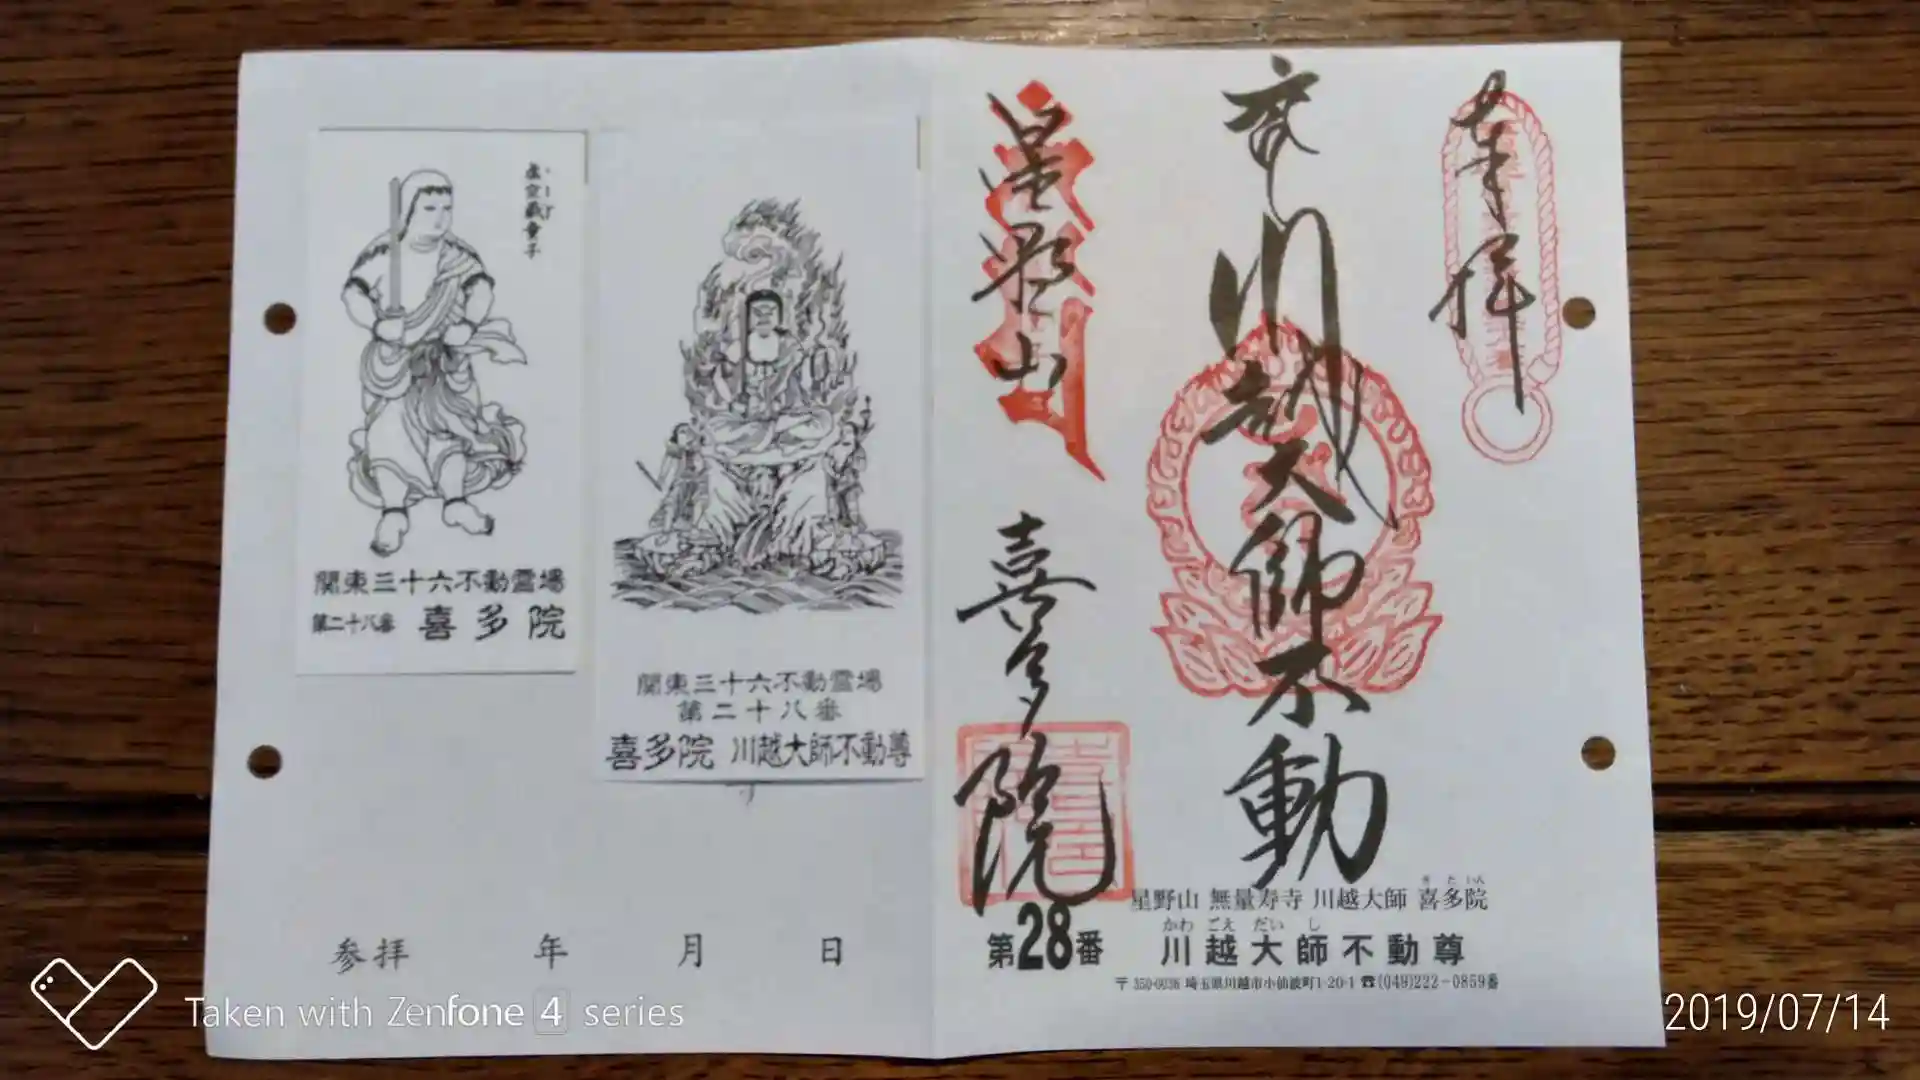 奉拝
川越大師不動
星野山
喜多院
星野山 無量寿寺 川越大師 喜多院
きたいん
かわごえだいし
第28番 川越大師不動尊
〒350-0036 埼玉県川越市小仙波町1-20-1 ☎(049)222-0859番
虚空蔵童子
関東三十六不動霊場
第二十八番 喜多院
関東三十六不動霊場
第二十八番
喜多院 川越大師不動尊
参拝 年 月 日
Taken with Zenfone 4 series
2019/07/14